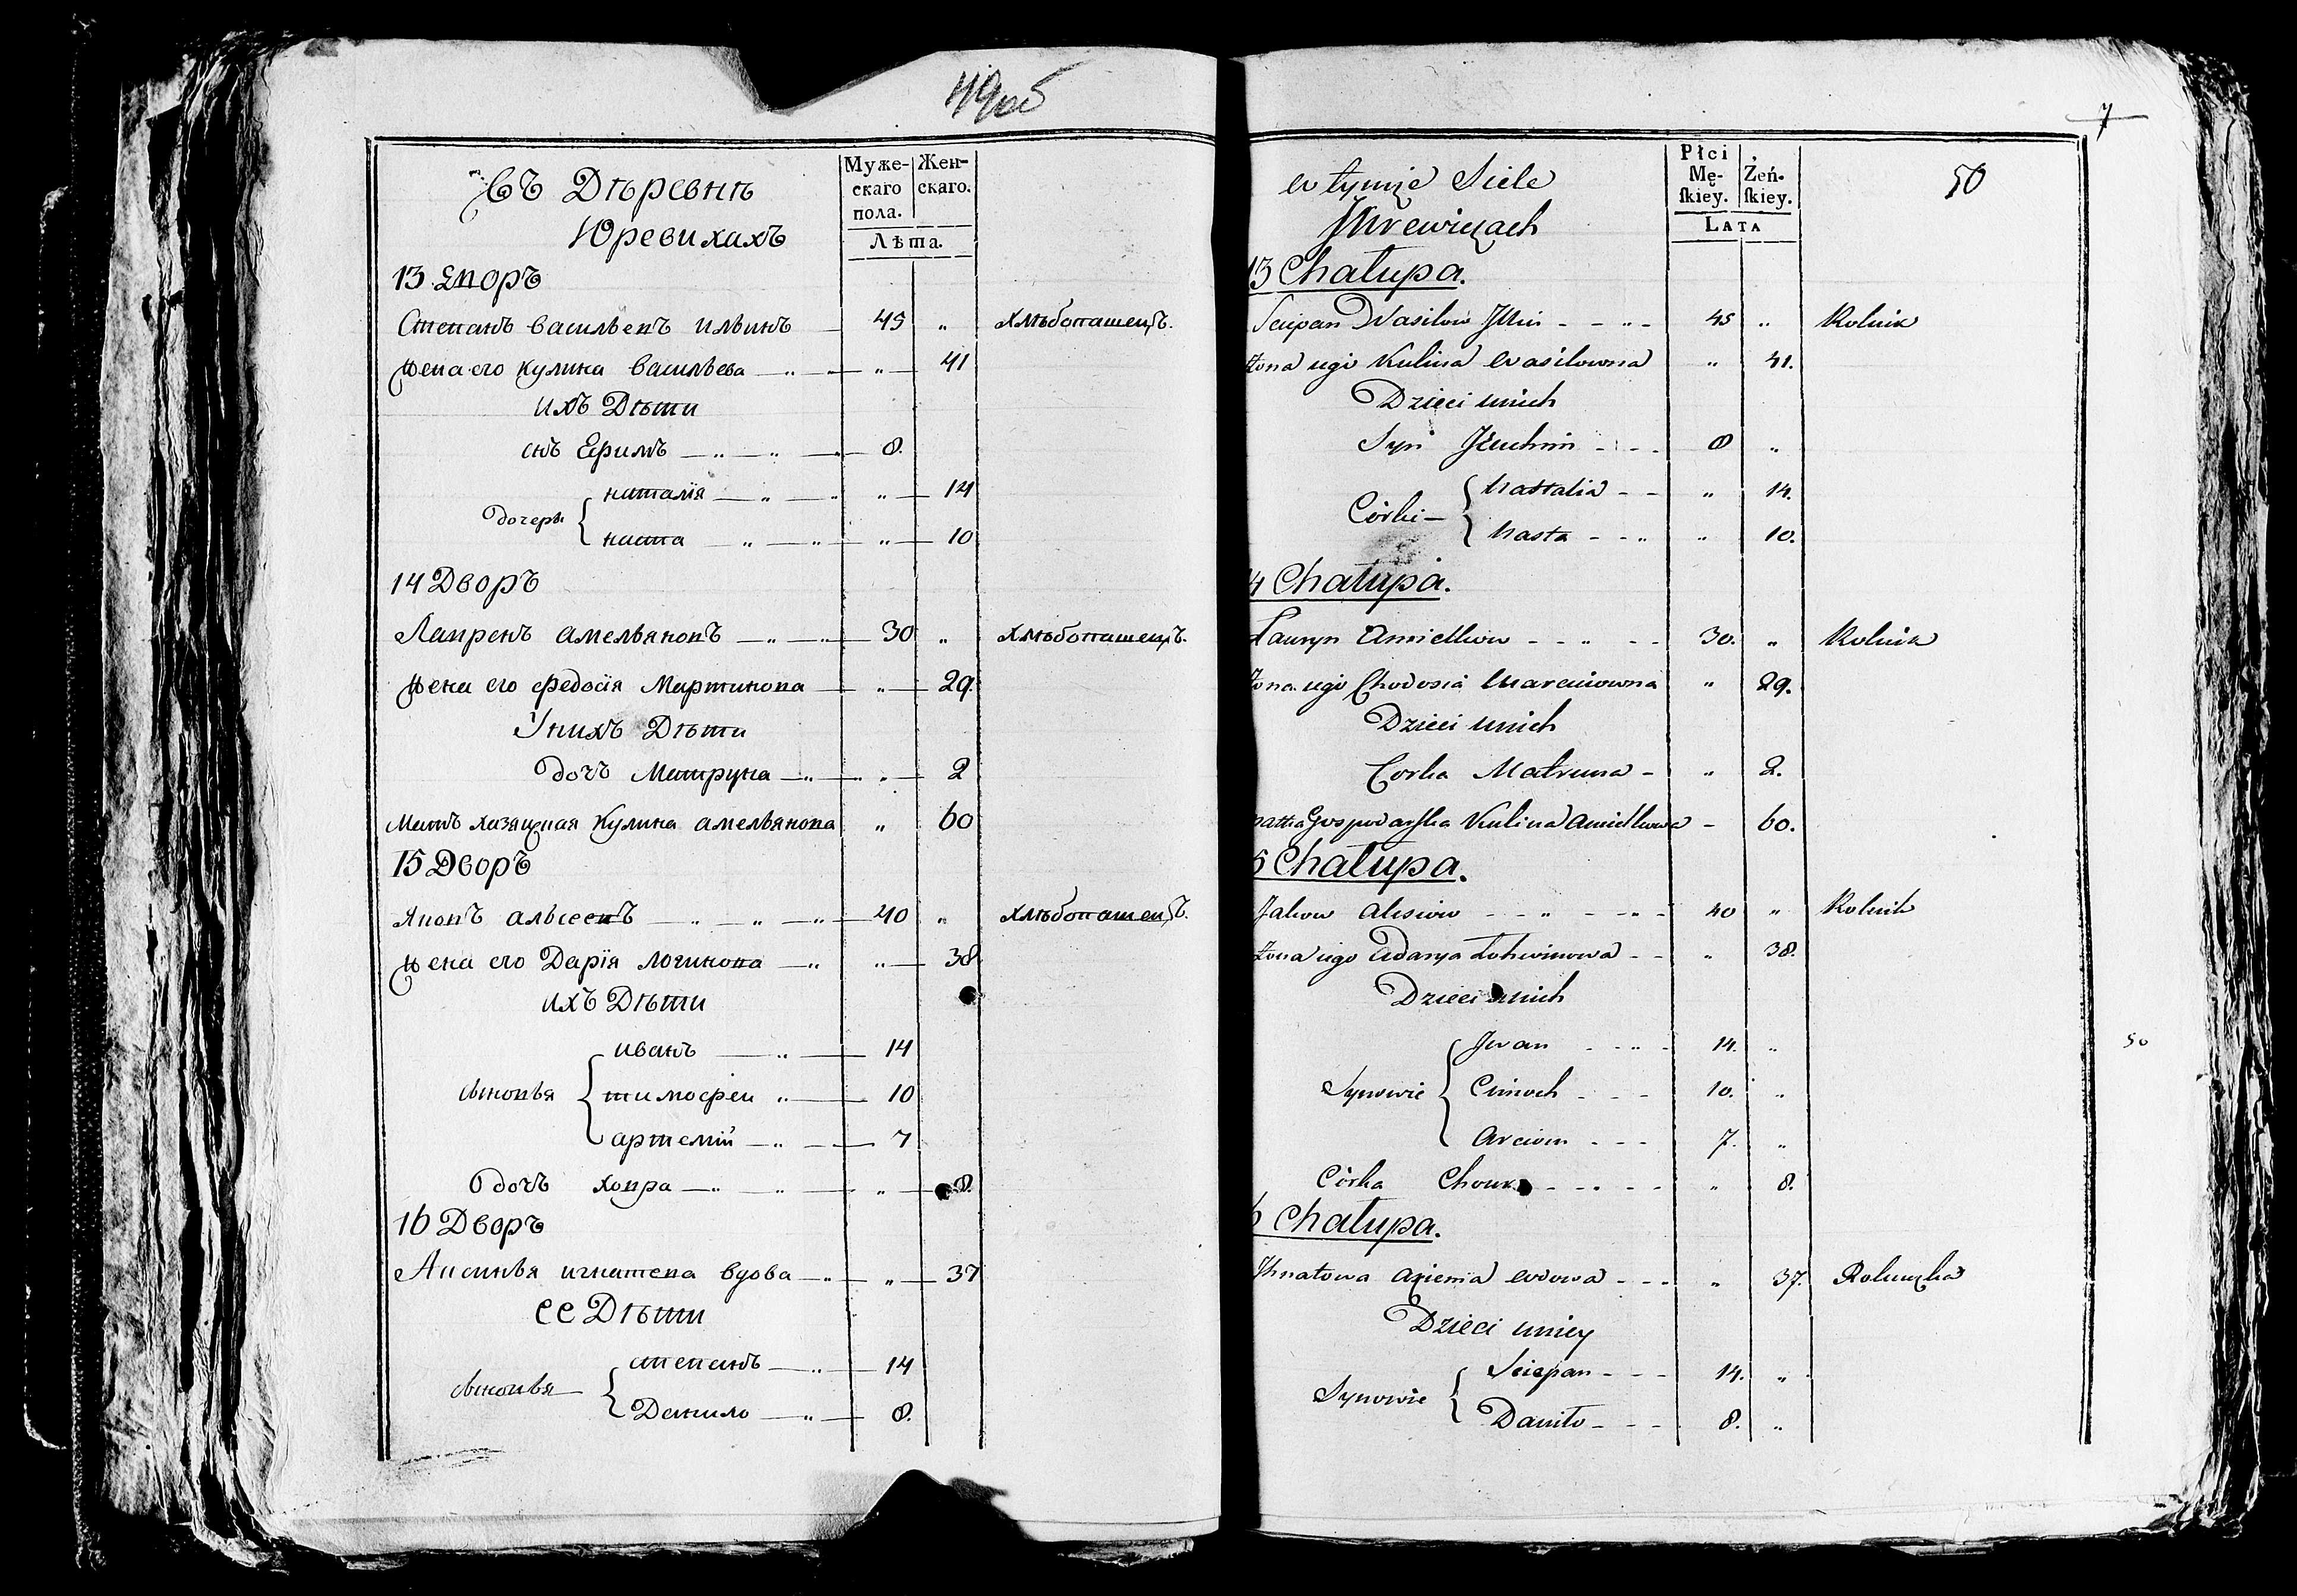 49об
Съ Дѣревнѣ
Юревихахъ
Муже-скаго пола.
Жен-скаго.
Лѣта.
13 Дворъ
Степанъ васильевъ ильинъ — 45 „ хлѣбопашецъ.
жена его кулина васильева — „ — „ — 41
ихъ Дѣти
снъ Ефимъ — „ — „ — 8.
дочери { наталія — „ — „ „ — 14
наста — „ — „ „ — 10
14 Дворъ
Лавренъ амельяновъ — „ — „ — 30 „ хлѣбопашецъ.
жена его федосія Мартинова — „ — 29.
Унихъ Дѣти
дочъ Матруна — „ — „ — 2
Матъ хазяцкая Кулина амельянова „ 60
15 Дворъ
Яковъ алѣсеевъ — „ — „ — „ — 40 „ хлѣбопашецъ.
жена его Дарія логинова — „ „ — 38
ихъ Дѣти
сыновья { иванъ — „ — 14
тимофеи „ — 10
артемій — „ — 7
дочъ ховра — „ — „ — „ — 8.
16 Дворъ
Аксинья игнатева вдова — „ — „ — 37
ее Дѣти
сыновья { степанъ — „ — 14
Данило — „ — 8.
7
w tymże Siele
Jurewiczach
Płci Mę-ſkiey.
Żeń-ſkiey.
LATA
50
13 Chałupa.
Sciepan Wasilow Jlin - - „ - 45 „ Rolnik
żona iego Kulina wasilowna „ 41.
Dzieci unich
Syn Jŭuchim - - - 8 „
Córki — { Nattalia - - „ 14.
Nasta - - „ „ 10.
4 Chałupa.
Łauryn Amiellow - - „ - - 30. „ Rolnik
Żona iego Chodosia Marciowna „ 29.
Dzieci unich
Corka Matruna - „ 2.
matka Gospodarſka Kulina Amiellowa - 60.
5 Chałupa.
Jakow Alisiow - - „ - - „ - 40 „ Rolnik
żona iego Adarya Łohwinowa - - „ 38.
Dzieci unich
Synowie { Jwan - - „ - 14. „
Cimoch - - - 10. „
Arciom - - - 7. „
Córka Chour - - - - „ 8.
6 Chałupa.
Jhnatowa Axienia wdowa - - - „ 37. Rolniczka
Dzieci uniey
Synowie { Sciepan - - - 14. „
Daniło - - - 8. „
50